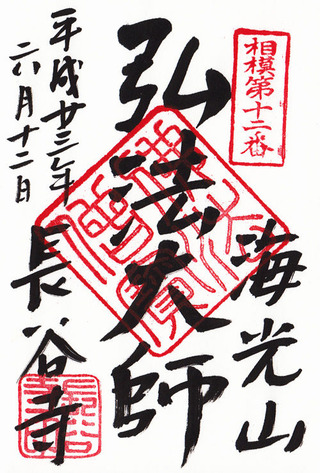 相模第十二番
海光山
弘法大師
長谷寺
平成廿三年
六月十二日